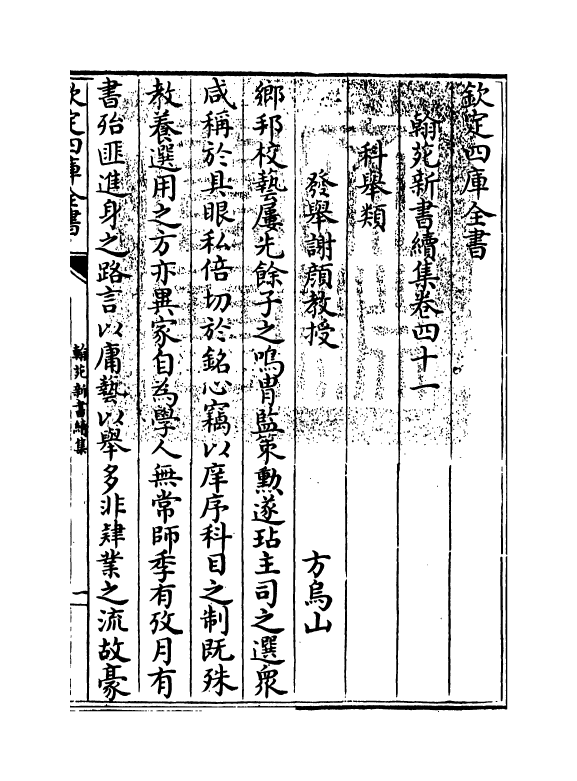 欽定四庫全書
翰苑新書續集卷四十一
科舉類
發舉謝顔教授
方烏山
鄉邦校藝屢先餘子之鳴胄監策勲遂玷主司之選衆
咸稱於具眼私倍切於銘心竊以庠序科目之制既殊
教養選用之方亦異家自為學人無常師季有攷月有
書殆匪進身之路言以庸藝以舉多非肄業之流故豪
欽定四庫全書
翰苑新書續集
一